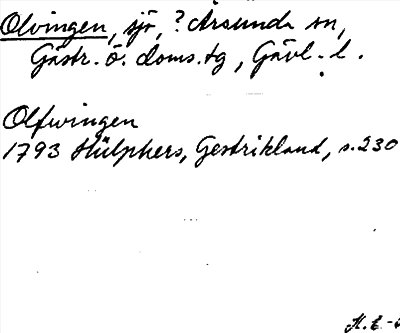 Olvingen, sjö, ? Årsunda sn,
Gästr. ö. doms.tg, Gävl. l.
Olfwingen
1793 Hülphers, Gestrikland, s. 230